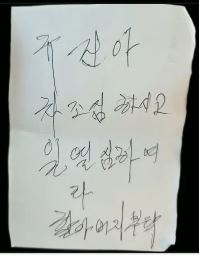 규진아
차 조심 하시고
일 열심히 하여
라
할아버지 부탁